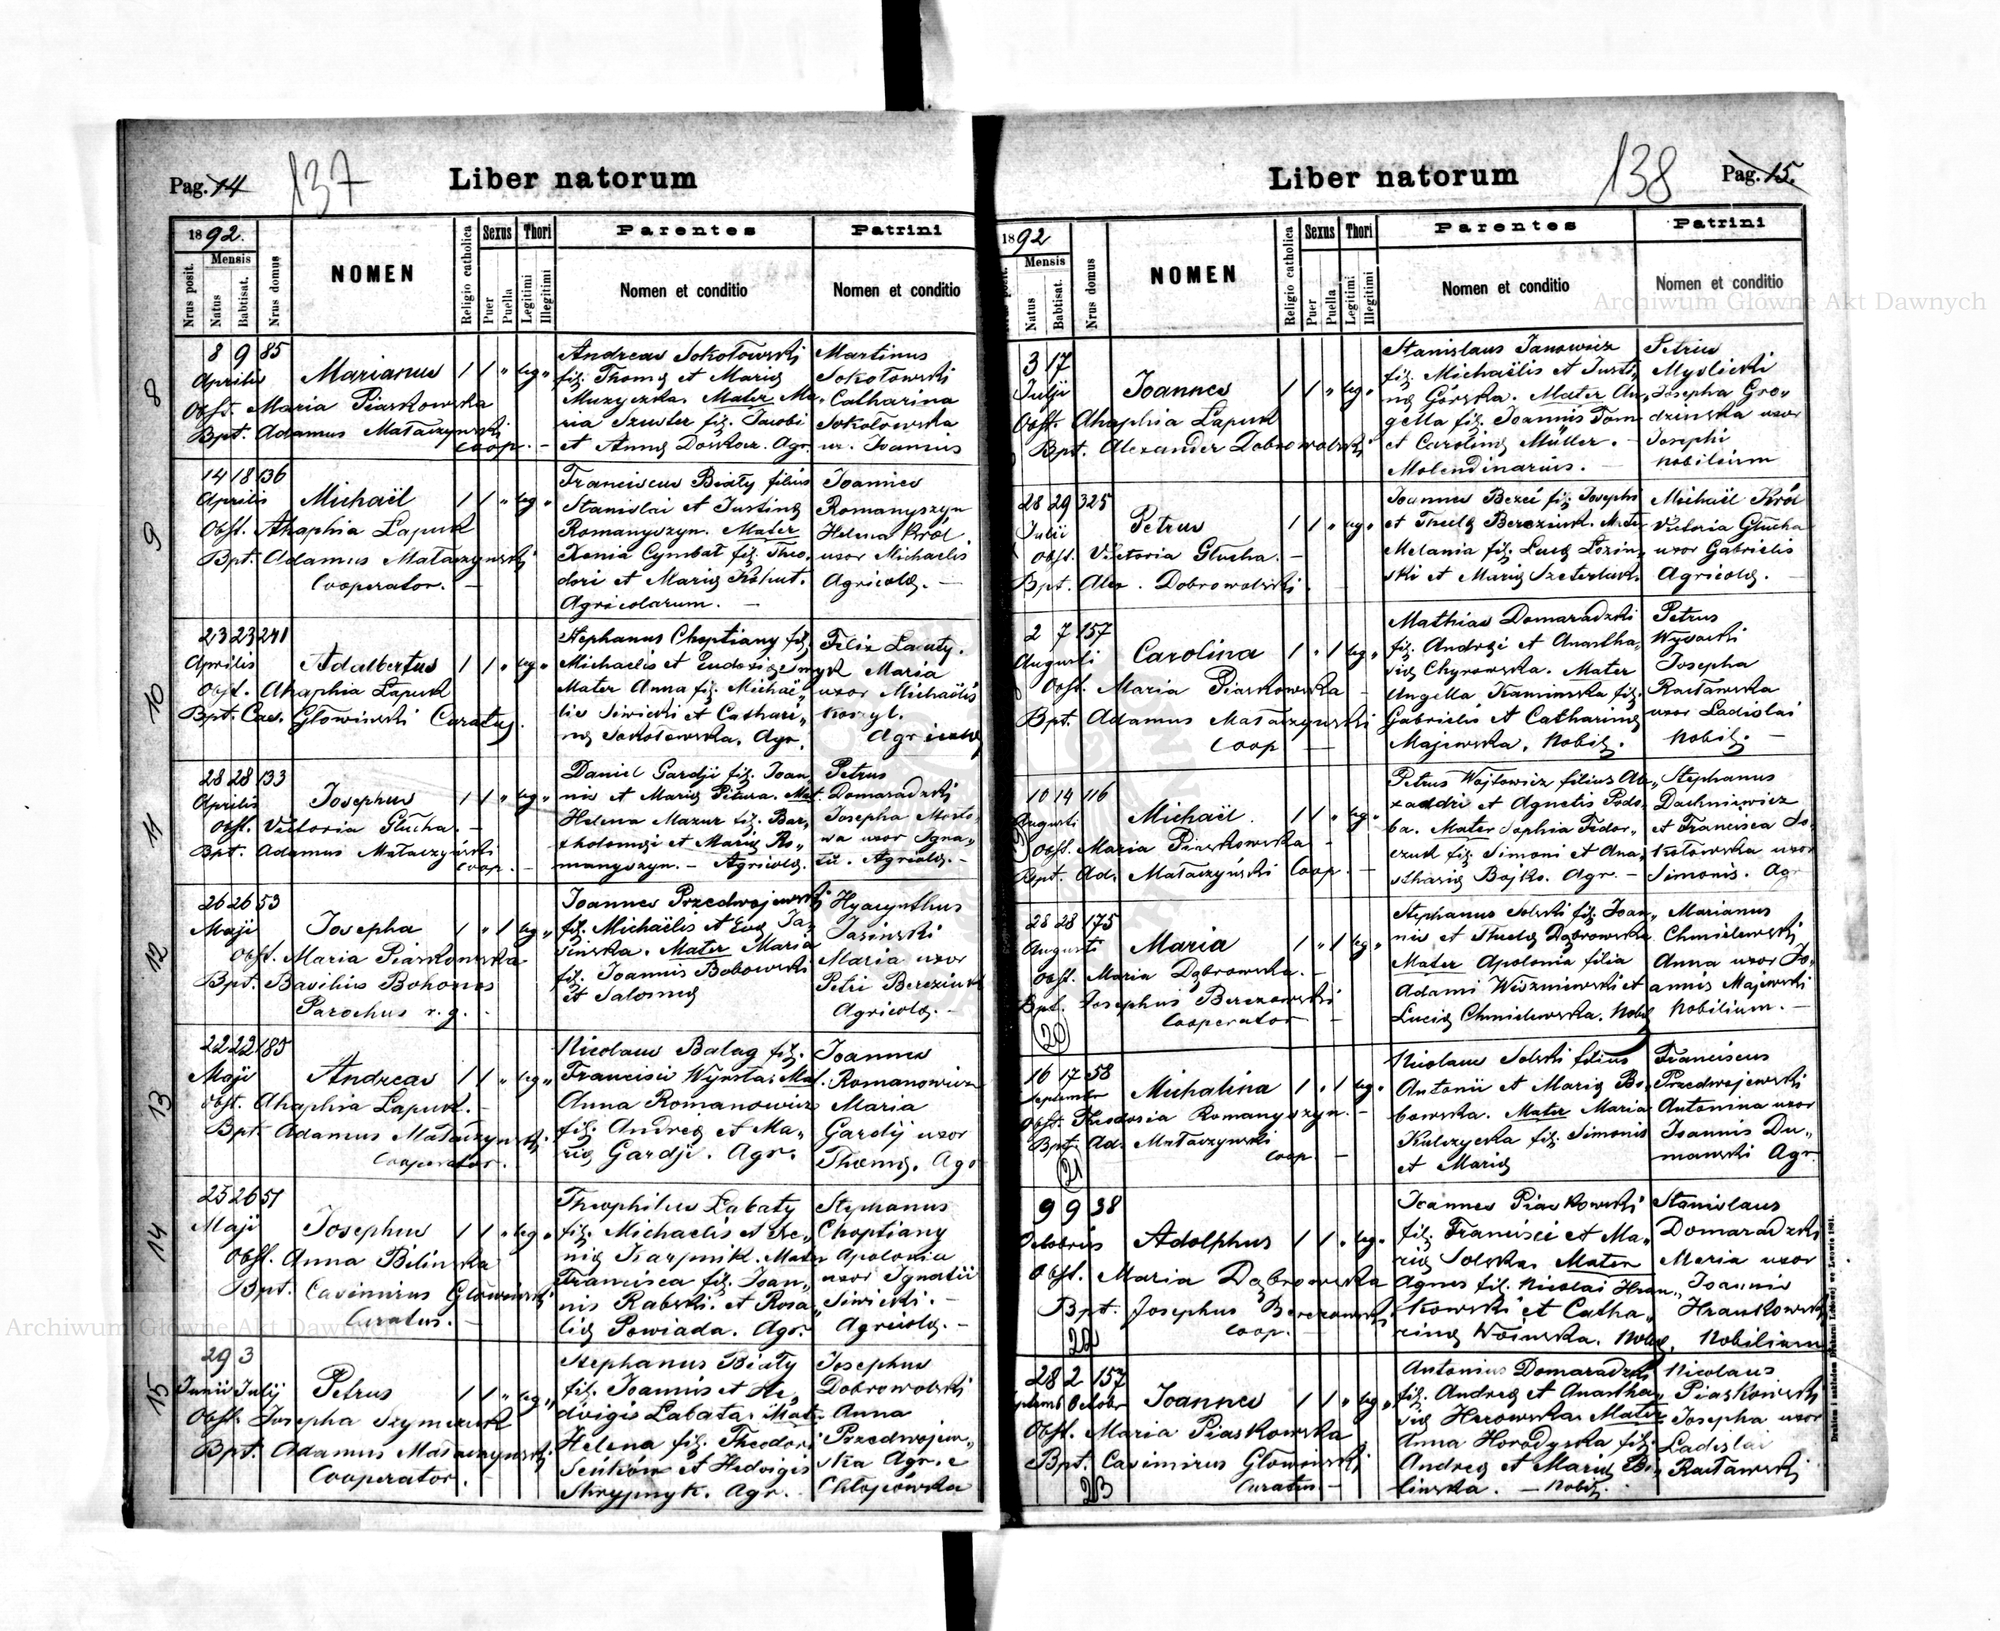 Pag. 14
137
Liber natorum
1892.
Mensis
Nrus posit.
Natus
Babtisat.
Nrus domus
NOMEN
Religio catholica
Sexus
Puer
Puella
Thori
Legitimi
Illegitimi
Parentes
Nomen et conditio
Patrini
Nomen et conditio
8
8 9 85
Aprilis
Marianus 1 1 " leg "
Obst. Maria Piaskowska
Bpt. Adamus Mataczynski
coop. -
Andreas Sokołowski
fil. Thomę et Marię
Muzyczka. Mater Ma-
ria Szuster fil. Jacobi
et Annę Agr.
Martinus
Sokołowski
Catharina
Sokołowska
ux. Joannis
9
14 18 136
Aprilis
Michaël 1 1 " leg "
Obst. Ahaphia Lapuk
Bpt. Adamus Mataczynski
Cooperator. -
Franciscus Biały filius
Stanislai et Justinę
Romanyszyn. Mater
Xenia Cymbał fil. Theo
dori et Marię
Agricolarum. -
Joannes
Romanyszyn
Helena Król
uxor Michaelis
Agricolę. -
10
23 23 241
Aprilis
Adalbertus 1 1 " leg "
Obst. Ahaphia Lapuk
Bpt. Cas. Głowinski Curatus.
Stephanus Choptiany fil.
Michaelis et
Mater Anna fil. Michaë-
lis Siwicki et Cathari-
nę Sokołowska. Agr.
Felix
Maria
uxor Michaëlis
Agricolę
11
28 28 133
Aprilis
Josephus 1 1 " leg "
Obst. Victoria Głucha. -
Bpt. Adamus Mataczyński
coop. -
Daniel Gardji fil. Joan-
nis et Marię Mat.
Helena Mazur fil. Bar-
tholomęi et Marię Ro-
manyszyn. - Agricolę.
Petrus
Domaradzki
Josepha
uxor Igna-
tii. Agricolę. -
12
26 26 53
Maji
Josepha 1 " 1 leg "
Obst. Maria Piaskowska
Bpt. Basilius Bohonos
Parochus r. g. -
Joannes Przedwojewski
fil. Michaëlis et Evę Ja-
sinska. Mater Maria
fil. Joannis Bobowski
et Salomeę
Hyacynthus
Jasinski
Maria uxor
Petri Bereziuk
Agricolę. -
13
22 22 185
Maji
Andreas 1 1 " leg "
Obst. Ahaphia Lapuk. -
Bpt. Adamus Mataczynski
Cooperator. -
Nicolaus Balag fil.
Francisci Mat.
Anna Romanowicz
fil. Andreę et Ma-
rię Gardji. Agr.
Joannes
Romanowicz
Maria
Gardij uxor
Thomę. Agr
14
25 26 51
Maji
Josephus 1 1 " leg "
Obst. Anna Bilinska
Bpt. Casimirus Głowinski
Curatus. -
Theophilus Labaty
fil. Michaelis et Xe-
nię Karpnik. Mater
Francisca fil. Joan-
nis Rabski et Rosa
lię Powiada. Agr.
Stephanus
Choptiany
Apolonia
uxor Ignatii
Siwicki. -
Agricolę. -
15
29 3
Junii Julij
Petrus 1 1 " leg "
Obst. Josepha Szymczuk
Bpt. Adamus Mataczynski
Cooperator. -
Stephanus Biały
fil. Joannis et He-
dvigis Labata. Mat.
Helena fil. Theodori
Seńków et Hedvigis
Skrypnyk. Agr.
Josephus
Dobrowolski
Anna
Przedwojew-
ska Agr. e
Chłopówska
138
Pag. 15.
Liber natorum
1892
Mensis
Natus
Babtisat.
Nrus domus
NOMEN
Religio catholica
Sexus
Puer
Puella
Thori
Legitimi
Illegitimi
Parentes
Nomen et conditio
Patrini
Nomen et conditio
3 17
Julji
Joannes 1 1 " leg "
Obst. Ahaphia Lapuk
Bpt. Alexander Dobrowolski
Stanislaus Janowicz
fil. Michaëlis et Justi-
nę Górska. Mater An-
gella fil. Joannis Tom
et Carolinę Müller. -
Molendinarius. -
Petrus
Myslicki
Josepha Gro-
dzinska uxor
Josephi
Nobilium
28 29 325
Julii
Petrus 1 1 " leg "
Obst. Victoria Głucha. -
Bpt. Alex. Dobrowolski.
Joannes fil. Josephi
et Theclę Bereziuk. Mater
Melania fil. Lucę Łozin-
ski et Marię
Michaël Król
Victoria Głucha
uxor Gabrielis
Agricolę. -
2 7 157
Augusti
Carolina 1 " 1 leg "
Obst. Maria Piaskowska -
Bpt. Adamus Mataczynski
Coop -
Mathias Domaradzki
fil. Andreęi et Anastha-
się Chyrowska. Mater
Angella Kaminska fil.
Gabrielis et Catharinę
Majewska. Nobilę.
Petrus
Wysocki
Josepha
Racławska
uxor Ladislai
Nobilę. -
10 14 116
Augusti
Michaël. 1 1 " leg "
Obst. Maria Piaskowska -
Bpt. Ad. Mataczyński Coop. -
Petrus Wojtowicz filius Ale-
xandri et Agnetis Pods-
ba. Mater Sophia Fedor-
czuk fil. Simoni et Ana-
sthasię Bojko. Agr. -
Stephanus
Dachniewicz
et Francisca So-
kołowska uxor
Simonis. Agr
28 28 175
Augusti
Maria 1 " 1 leg "
Obst. Maria Dąbrowska. -
Bpt. Josephus Berezowski
Cooperator -
20
Stephanus Solski fil. Joan-
nis et Theclę Dąbrowska
Mater Apolonia filia
Adami Wiszniewski et
Lucię Chmielewska. Nobil
Marianus
Chmielewski
Anna uxor Jo-
annis Majewski
Nobilium. -
16 17 58
Septembr
Michalina 1 " 1 leg "
Obst. Theodosia Romanyszyn. -
Bpt. Ad. Mataczynski
Coop. -
21
Nicolaus Solski filius
Antonii et Marię Bo-
bowska. Mater Maria
Kulczycka fil. Simonis
et Marię
Franciscus
Przedwojewski
Antonina uxor
Joannis Du-
manski Agr.
9 9 38
Octobris
Adolphus 1 1 " leg "
Obst. Maria Dąbrowska
Bpt. Josephus Berezowski
Coop. -
22
Joannes Piaskowski
fil. Francisci et Ma-
rię Solska. Mater
Agnes fil. Nicolai Hran-
kowski et Catha-
rinę Wosinska. Nobil.
Stanislaus
Domaradzki
Maria uxor
Joannis
Hrankowski
Nobilium
28 2 157
Septemb Octobr
Joannes 1 1 " leg "
Obst. Maria Piaskowska
Bpt. Casimirus Głowinski
Curatus. -
23
Antonius Domaradzki
fil. Andreę et Anastha-
się Mater
Anna Horodyska fil.
Andreę et Marię Bi-
linska. - Nobil.
Nicolaus
Piaskowski
Josepha uxor
Ladislai
Racławski
Archiwum Główne Akt Dawnych
Archiwum Główne Akt Dawnych